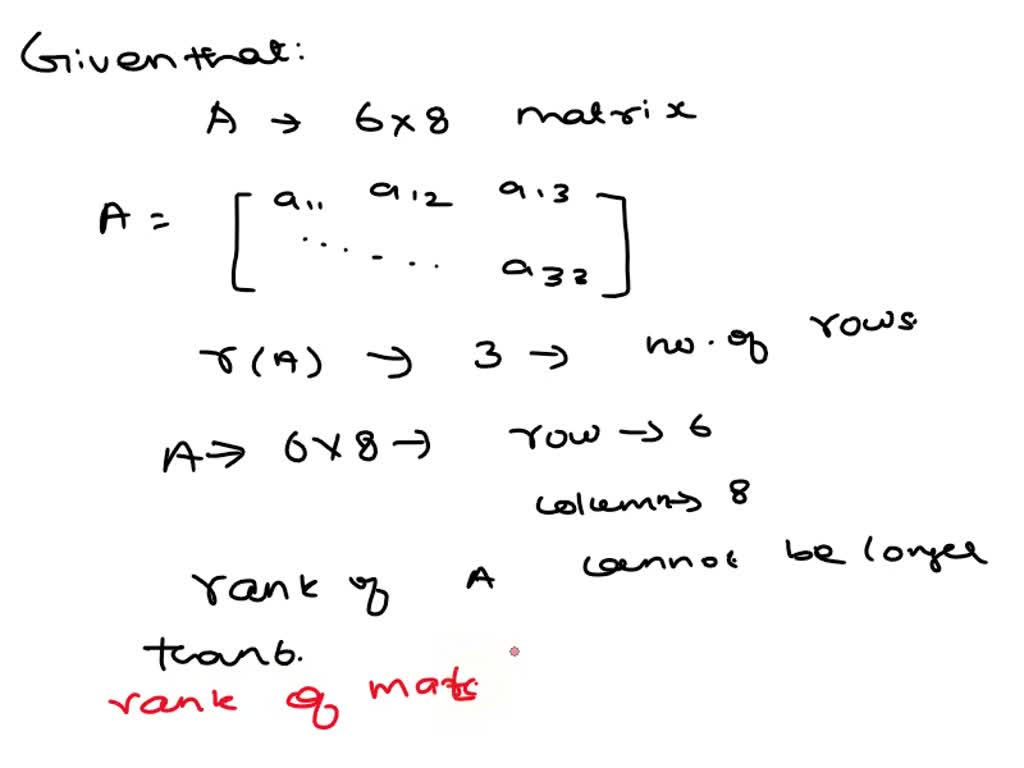 Given that:
A → 6×8 matrix
A = [ a11 a12 a13
..... - ... a33 ]
r(A) → 3 → no. of rows
A → 6×8 → row → 6
column → 8
rank of A cannot be larger
than 6.
rank of mat